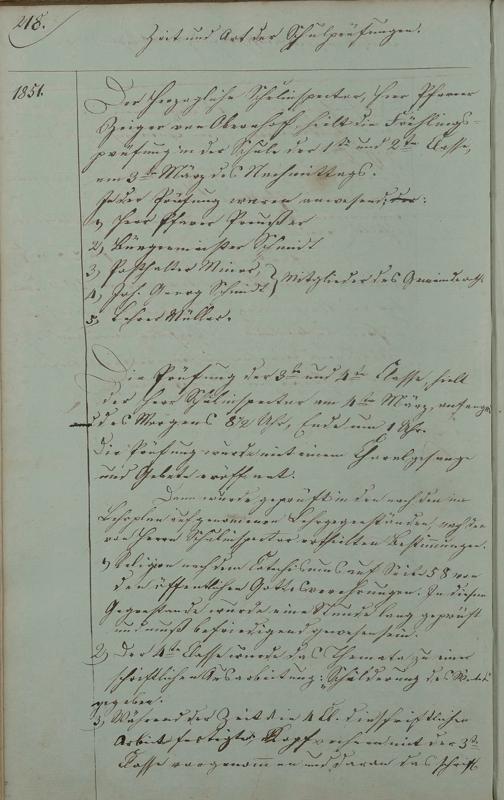 218.
Zeit und Art der Schulprüfungen.
1851.
Der Herzogliche Schulinspector, Herr Pfarrer
von hielt die Frühlings-
prüfung in der Schule der 1ten und 2ten Classe,
am 3ten März des Nachmittags.
In der Prüfung waren anwesend:
1, Herr Pfarrer
2, Bürgermeister Schmidt
3, Posthalter Minor,
4, Joh. Georg Schmidt } Mitglieder des Gemeinderaths
5, Lehrer Müller.
Die Prüfung der 3ten und 4ten Classe, hielt
der Herr Schulinspector am 4ten März, anfangs
des Morgens 8 1/2 Uhr, Ende um 1 Uhr.
Die Prüfung wurde mit einem Choralgesange
und Gebete eröffnet.
Dann wurde geprüft in den nach dem
Lehrplan aufgenommenen Lehrgegenständen, nach den
von Herrn Schulinspector ertheilten Bestimmungen.
1, Religion nach dem Catechismus auf Seite 58 von
den öffentlichen Gottesverehrungen. In diesem
Gegenstande wurde eine Stunde lang geprüft
und muß befriedigend gewesen sein.
2, Der 4ten Classe wurde das Themata zu einer
schriftlichen Ausarbeitung: Schilderung des Winters
gegeben.
3, Während der Zeit die 4 Cl. die schriftlichen
Arbeit fertigte, Kopfrechnen mit der 3ten
Classe vorgenommen und daran das schriftl.